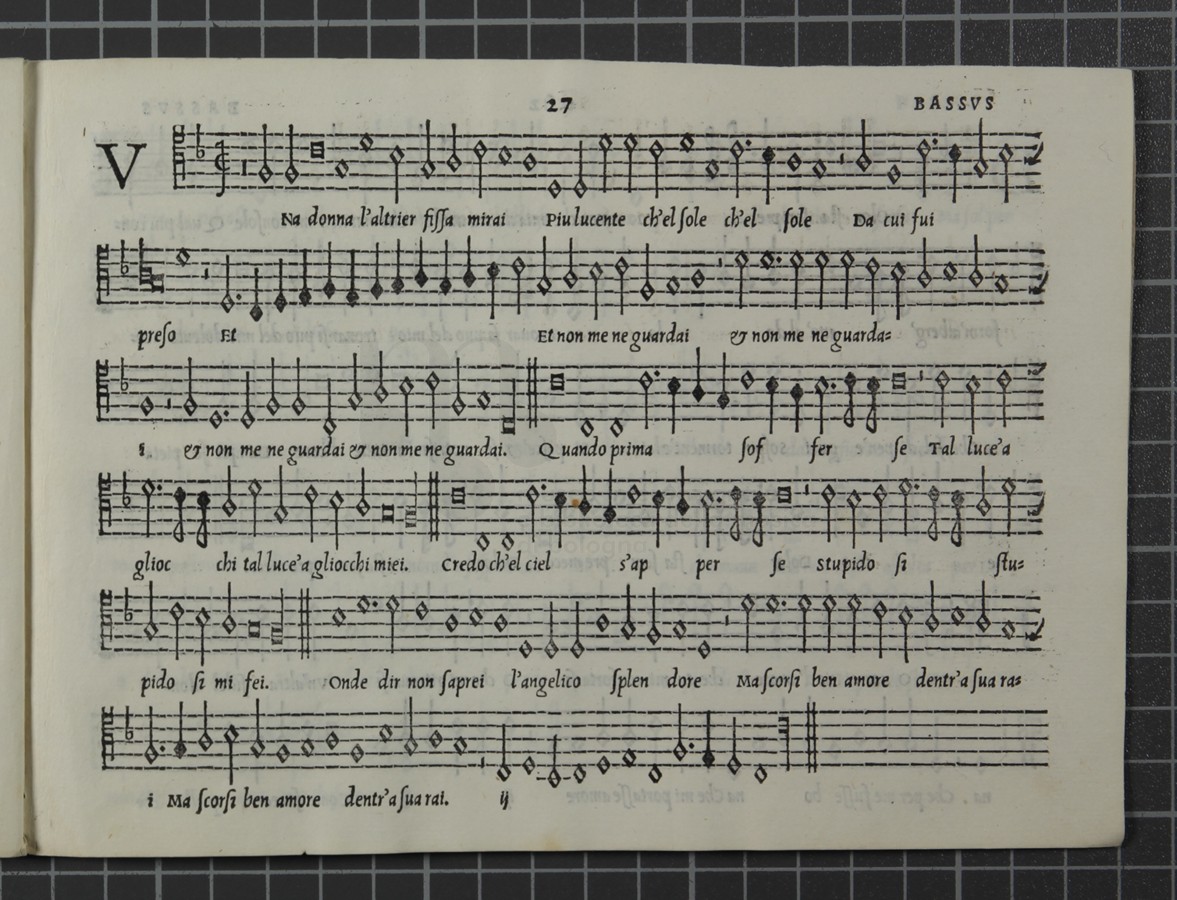 27 BASSVS
VNa donna l'altrier fiſſa mirai Piu lucente ch'el ſole ch'el ſole Da cui fui
preſo Et Et non me ne guardai & non me ne guarda=
i & non me ne guardai & non me ne guardai. Quando prima ſof fer ſe Tal luce'a
glioc chi tal luce'a gliocchi miei. Credo ch'el ciel s'ap per ſe stupido ſi ſtu=
pido ſi mi fei. Onde dir non ſaprei l'angelico ſplen dore Ma ſcorſi ben amore dentr'a ſua ra=
i Ma ſcorſi ben amore dentr'a ſua rai. ij